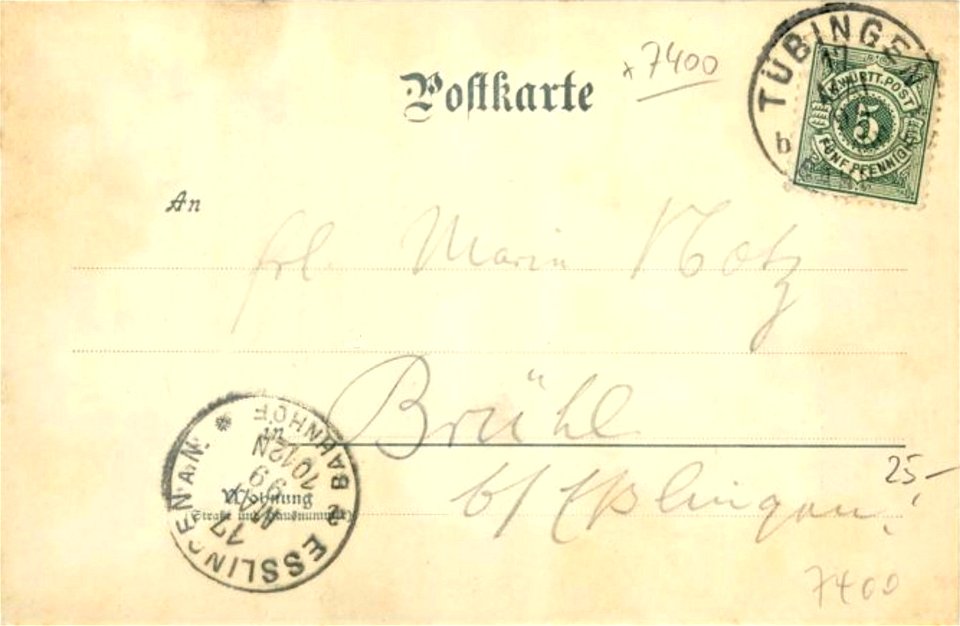 Postkarte
* 7400
TÜBINGEN
17
b
K. WÜRTT. POST
5
FÜNF PFENNIG
An
Frl. Marie Motz
Brühl
in
b/ Eßlingen.
25,-
Wohnung
(Straße und Hausnummer)
ESSLINGEN A/N.
BAHNHOF
17
10-12N
7400